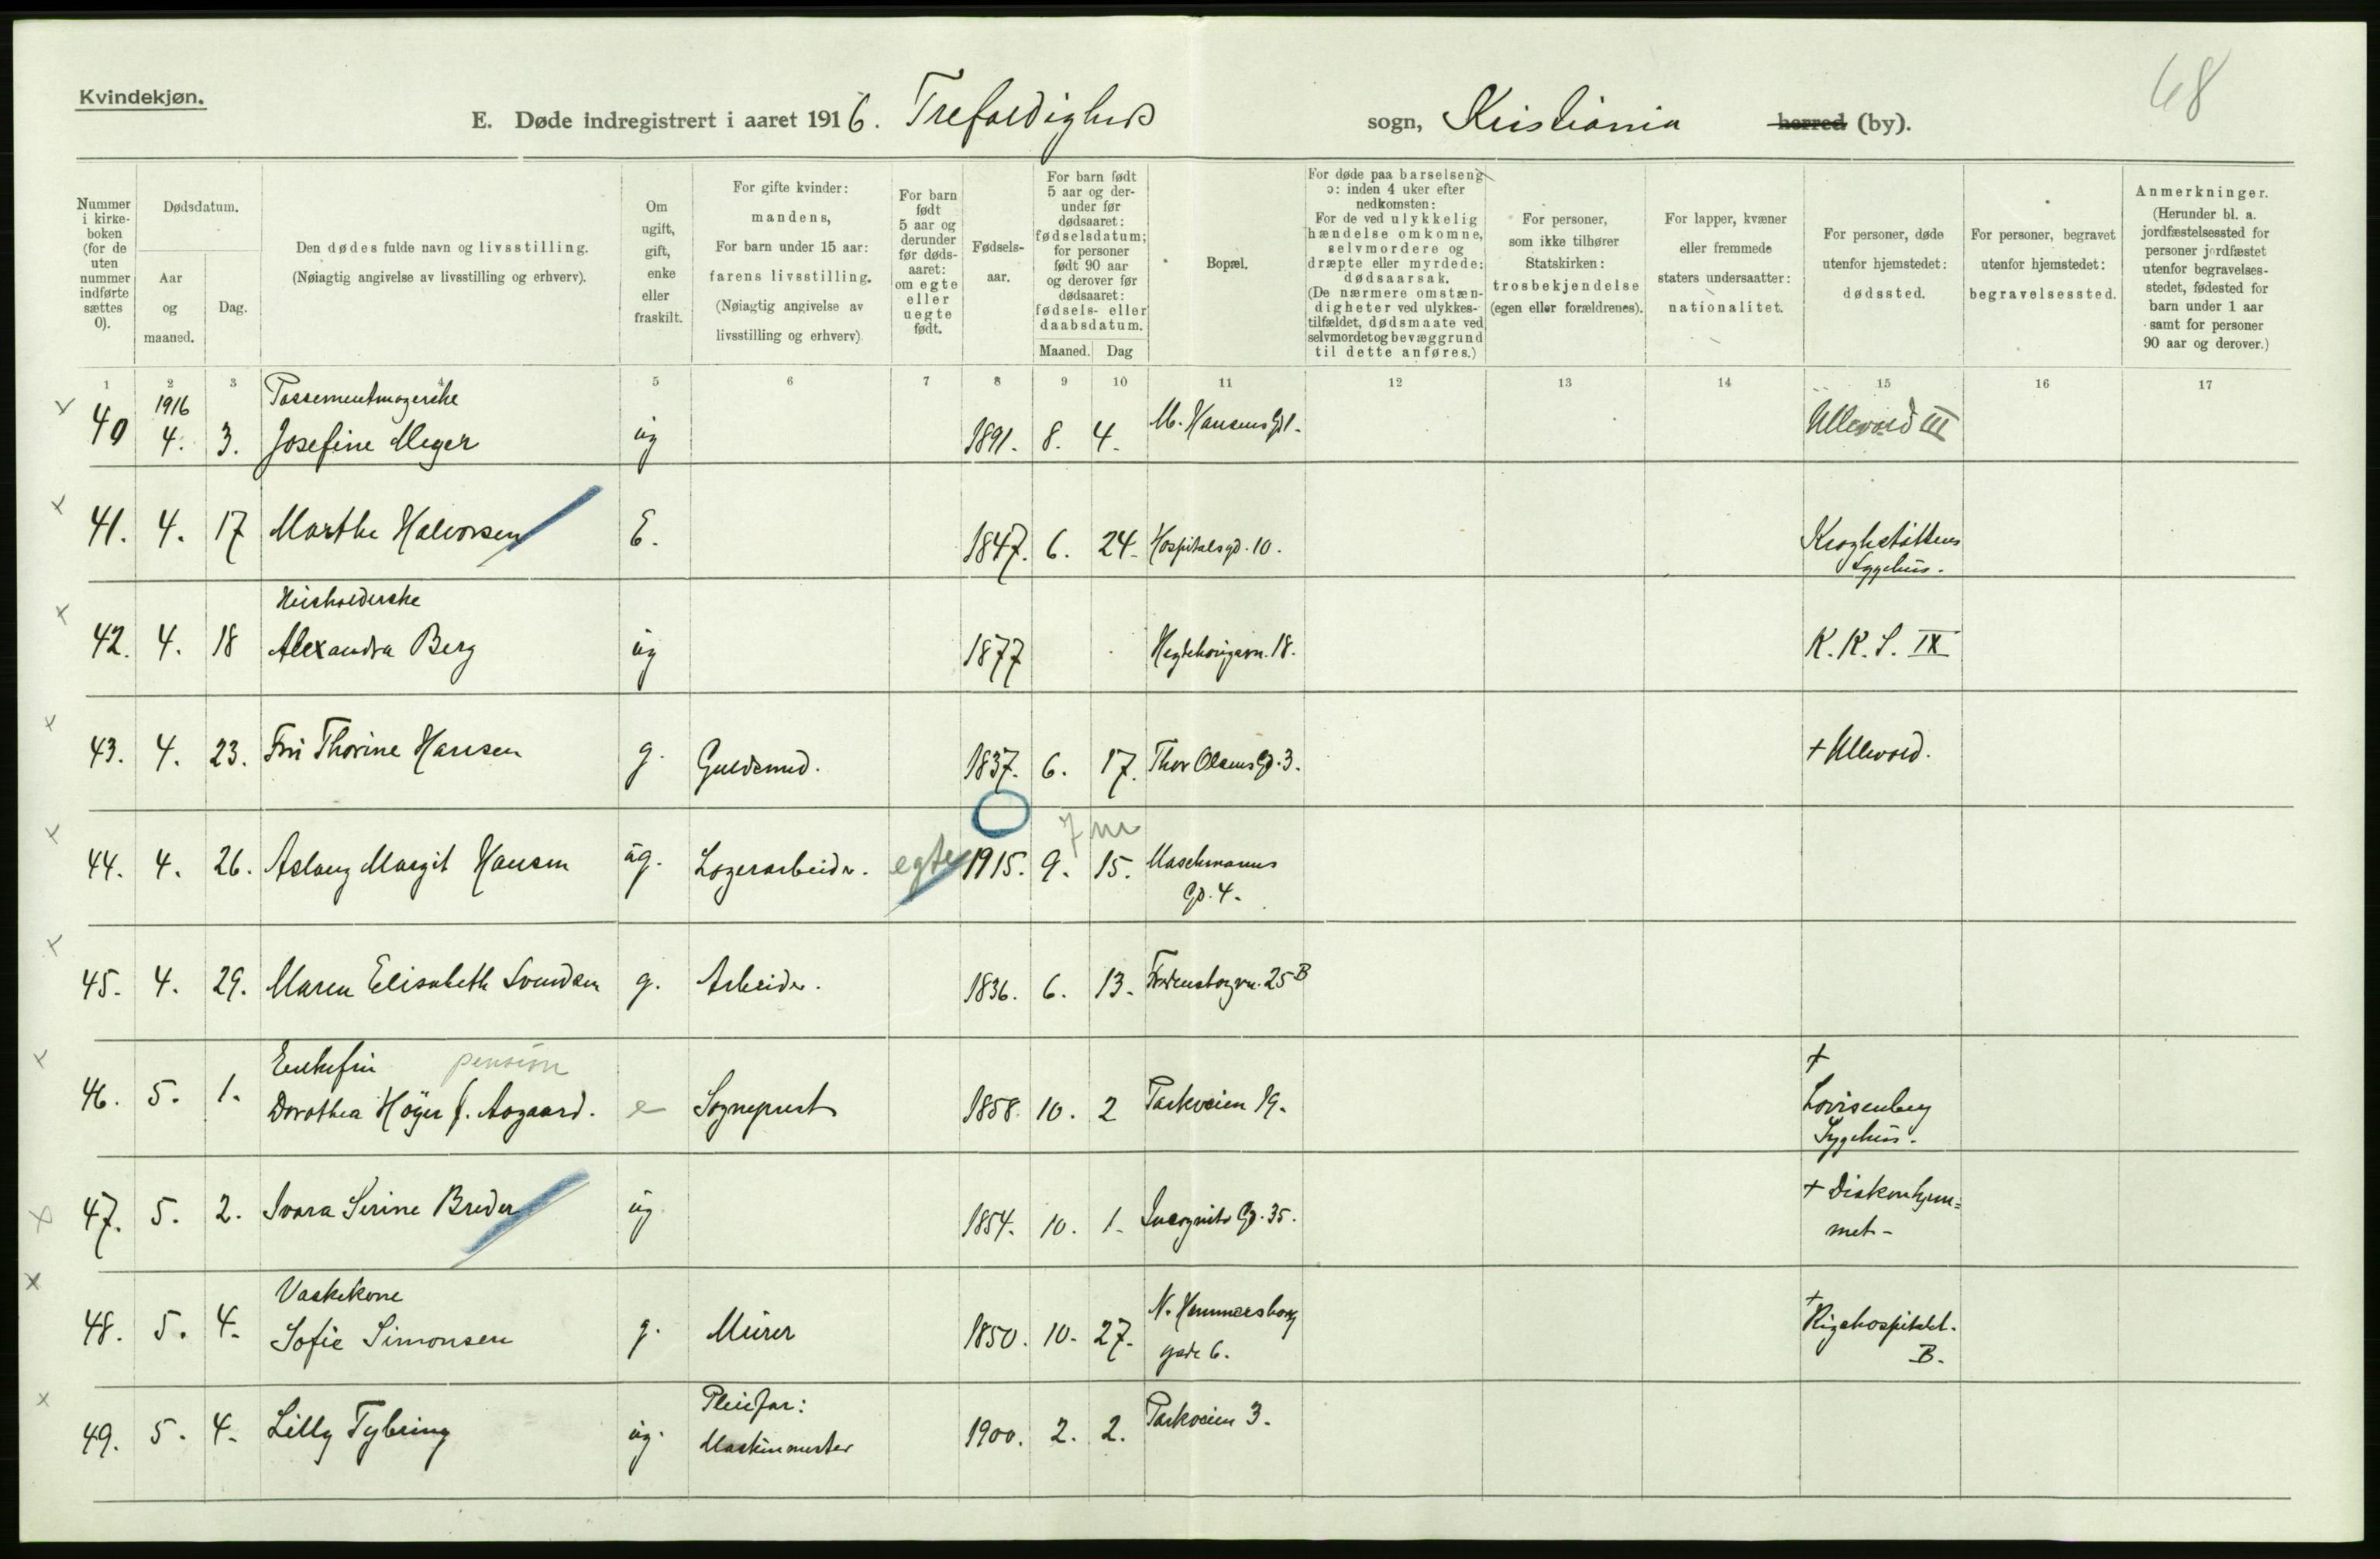 68
Kvindekjøn.
E. Døde indregistrert i aaret 1916. Trefoldigheds sogn, Kristiania herred (by).
Nummer i kirke-boken (for de uten nummer indførte sættes 0).
Dødsdatum.
Aar og maaned.
Dag.
Den dødes fulde navn og livsstilling.
(Nøiagtig angivelse av livsstilling og erhverv).
Om ugift, gift, enke eller fraskilt.
For gifte kvinder: mandens,
For barn under 15 aar: farens livsstilling.
(Nøiagtig angivelse av livsstilling og erhverv)
For barn født 5 aar og derunder før døds-aaret: om egte eller uegte født.
Fødsels-aar.
For barn født 5 aar og der-under før dødsaaret: fødselsdatum; for personer født 90 aar og derover før dødsaaret: fødsels- eller daabsdatum.
Maaned. Dag
Bopæl.
For døde paa barselseng ɔ: inden 4 uker efter nedkomsten:
For de ved ulykkelig hændelse omkomne, selvmordere og dræpte eller myrdede: dødsaarsak.
(De nærmere omstæn-digheter ved ulykkes-tilfældet, dødsmaate ved selvmordet og bevæggrund til dette anføres.)
For personer, som ikke tilhører Statskirken: trosbekjendelse (egen eller forældrenes).
For lapper, kvæner eller fremmede staters undersaatter: nationalitet.
For personer, døde utenfor hjemstedet: dødssted.
For personer, begravet utenfor hjemstedet: begravelsessted.
Anmerkninger.
(Herunder bl. a. jordfæstelsessted for personer jordfæstet utenfor begravelses-stedet, fødested for barn under 1 aar samt for personer 90 aar og derover.)
1 2 3 4 5 6 7 8 9 10 11 12 13 14 15 16 17
1916 Possementmagerske
x 40 4. 3. Josefine Meyer ug 1891. 8. 4. M. Hansens Gd 1. Ullevold III
x 41. 4. 17 Marthe Halvorsen E. 1847. 6. 24. Hospitalsgd. 10. Kroghstøttens
Sygehus.
Husholderske
x 42. 4. 18 Alexandra Berg ug 1877 Hegdehaugsvn. 18. K. K. S. IX
x 43. 4. 23. Fru Thorine Hansen g. Guldsmed. 1837. 6. 17. Thor Olsens Gd. 3. + Ullevold.
7 m
x 44. 4. 26. Aslaug Margit Hansen ug. Lagerarbeider. egte 1915. 9. 15. Maschmanns
Gd. 4.
x 45. 4. 29. Maren Elisabeth Svendsen g. Arbeider. 1836. 6. 13. Fredensborgvn. 25 B
Enkefru pension +
x 46. 5. 1. Dorothea Höyer f. Aagaard. e Sogneprest 1858. 10. 2 Parkveien 19. Lovisenberg
Sygehus.
x 47. 5. 2. Svara Serine Breder ug 1854. 10. 1. Incognito Gd. 35. + Diakonhjem=
met.
Vaskekone
x 48. 5. 4. Sofie Simonsen g. Murer 1850. 10. 27. N. Hammersborg
gade 6. + Rigshospitalet.
B.
Pleiefar:
x 49. 5. 4. Lilly Tybring ug. Maskinmester 1900. 2. 2. Parkveien 3.